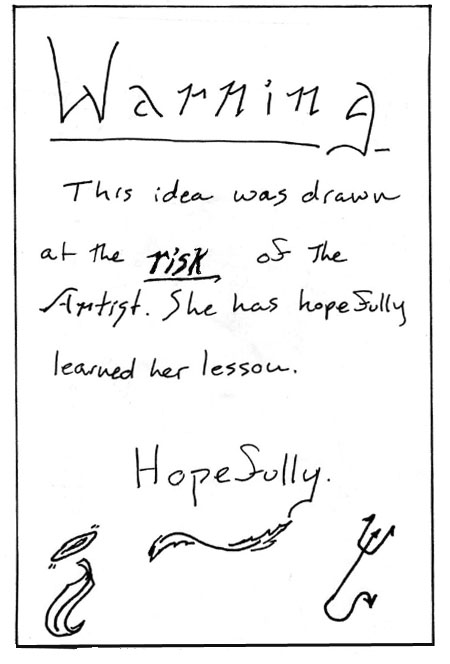 Warning
This idea was drawn
at the risk of the
Artist. She has hopefully
learned her lesson.
Hopefully.